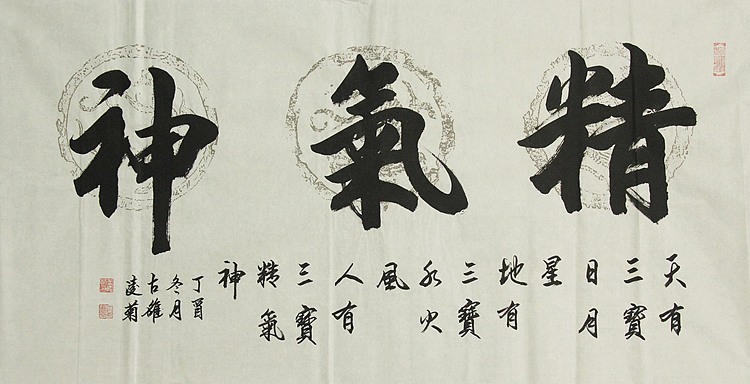 精氣神
天有
三寶
日月
星
地有
三寶
水火
風
人有
三寶
精氣
神
丁酉
冬月
古雄
凌菊